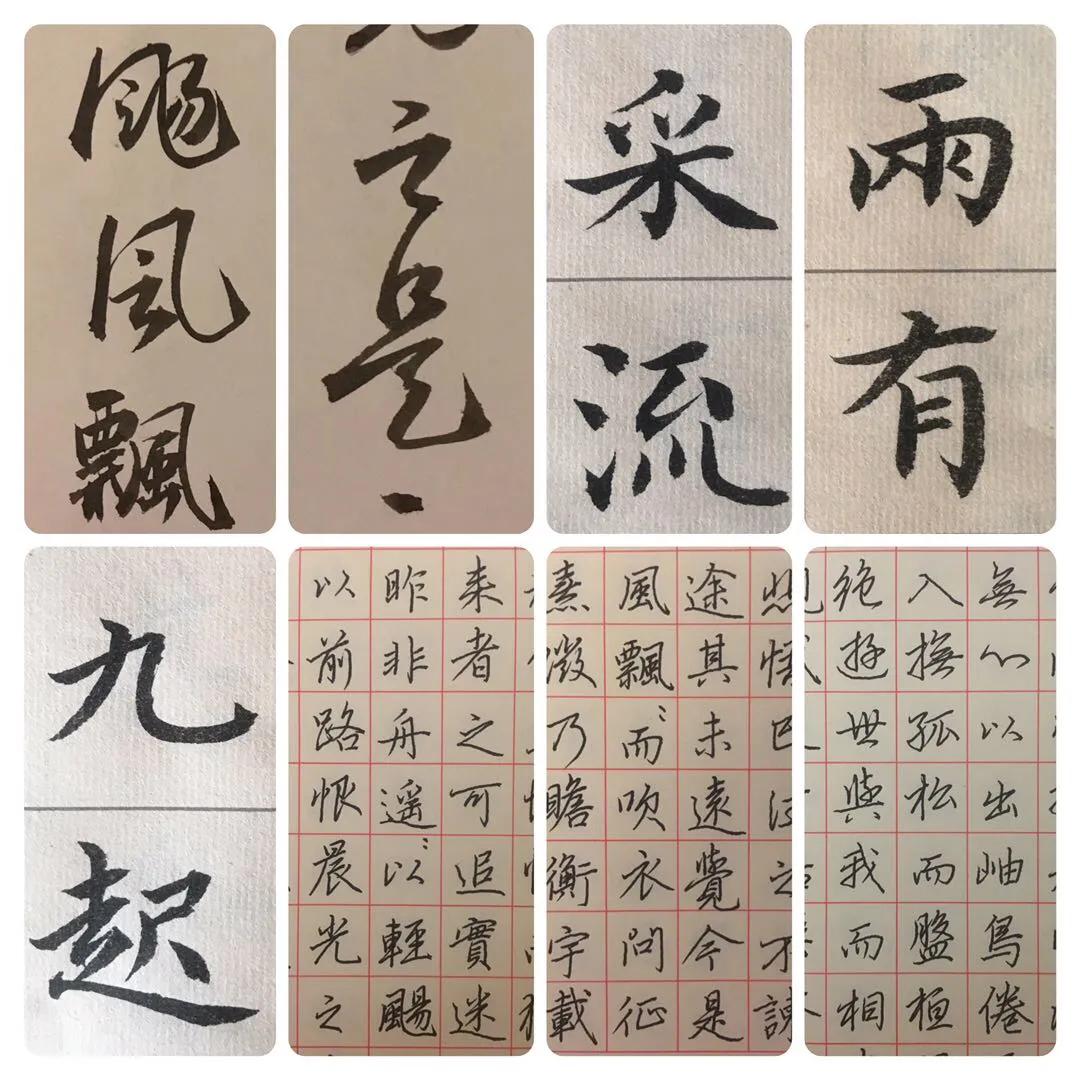 颺風飄
是
采
流
雨
有
九
起
来者之可追實迷
昨非舟遥〻以輕颺
以前路恨晨光之
途其未遠覺今是
風飄〻而吹衣問征
熹微乃瞻衡宇載
無心以出岫鳥倦
入撫孤松而盤桓
絶遊世與我而相